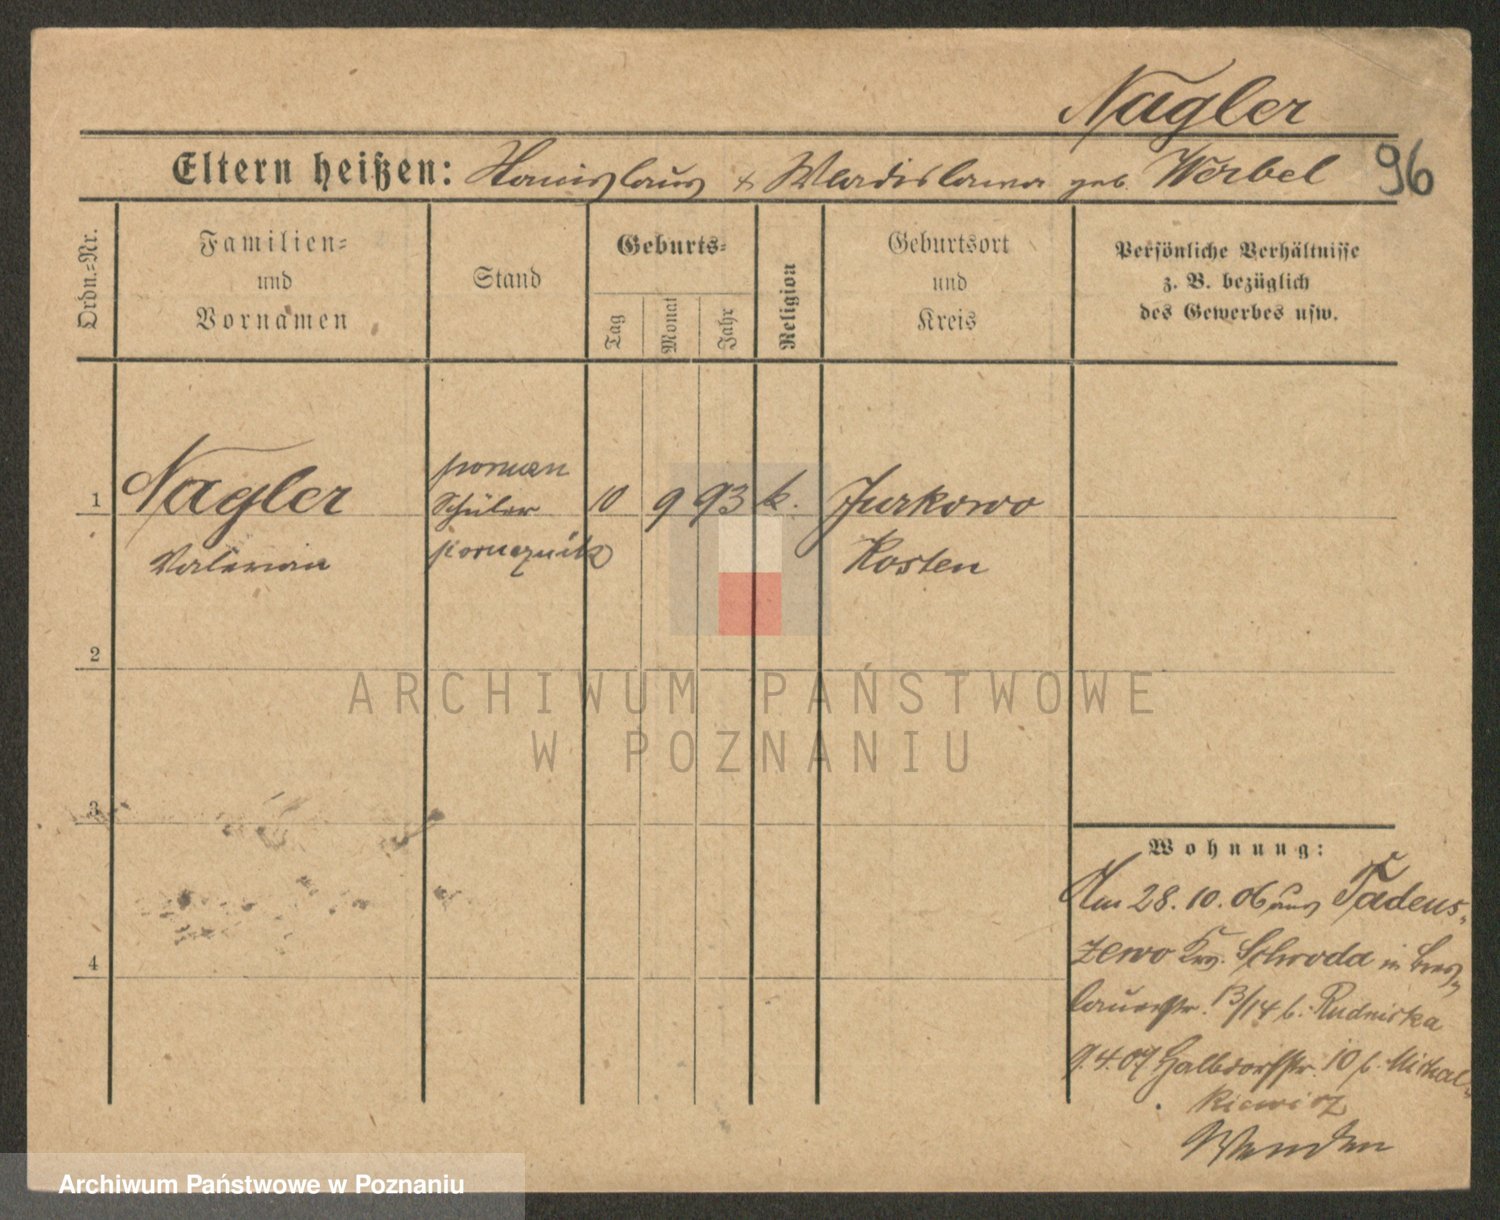 Nagler
Eltern heißen: Stanislaus & Wladislawa geb. Werbel
96
Ordn.=Nr.
Familien=
und
Vornamen
Stand
Geburts=
Tag
Monat
Jahr
Religion
Geburtsort
und
Kreis
Persönliche Verhältnisse
z. B. bezüglich
des Gewerbes usw.
1 Nagler Schüler 10 9 93 k. Jurkowo
Valerian Kosten
2
3
4
ARCHIWUM PAŃSTWOWE
W POZNANIU
Wohnung:
Am 28. 10. 06 aus Tadeus-
zewo Krs. Schroda in Bres-
lauerstr. 13/14 b. Rudnicka
9.4.07 Halbdorfstr. 10 b. Michal-
kiewicz
Archiwum Państwowe w Poznaniu